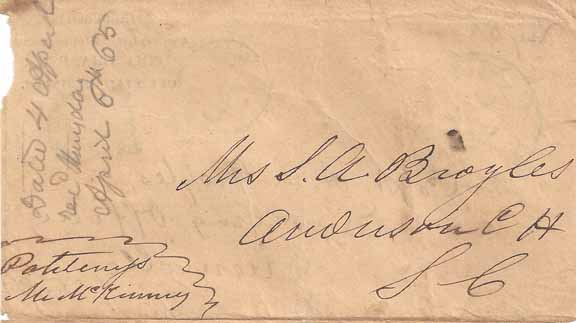 Dated 4 April
recd Thursday
April 6th 65
Mrs S. A. Broyles
Anderson C H
S C
Mr McKinney